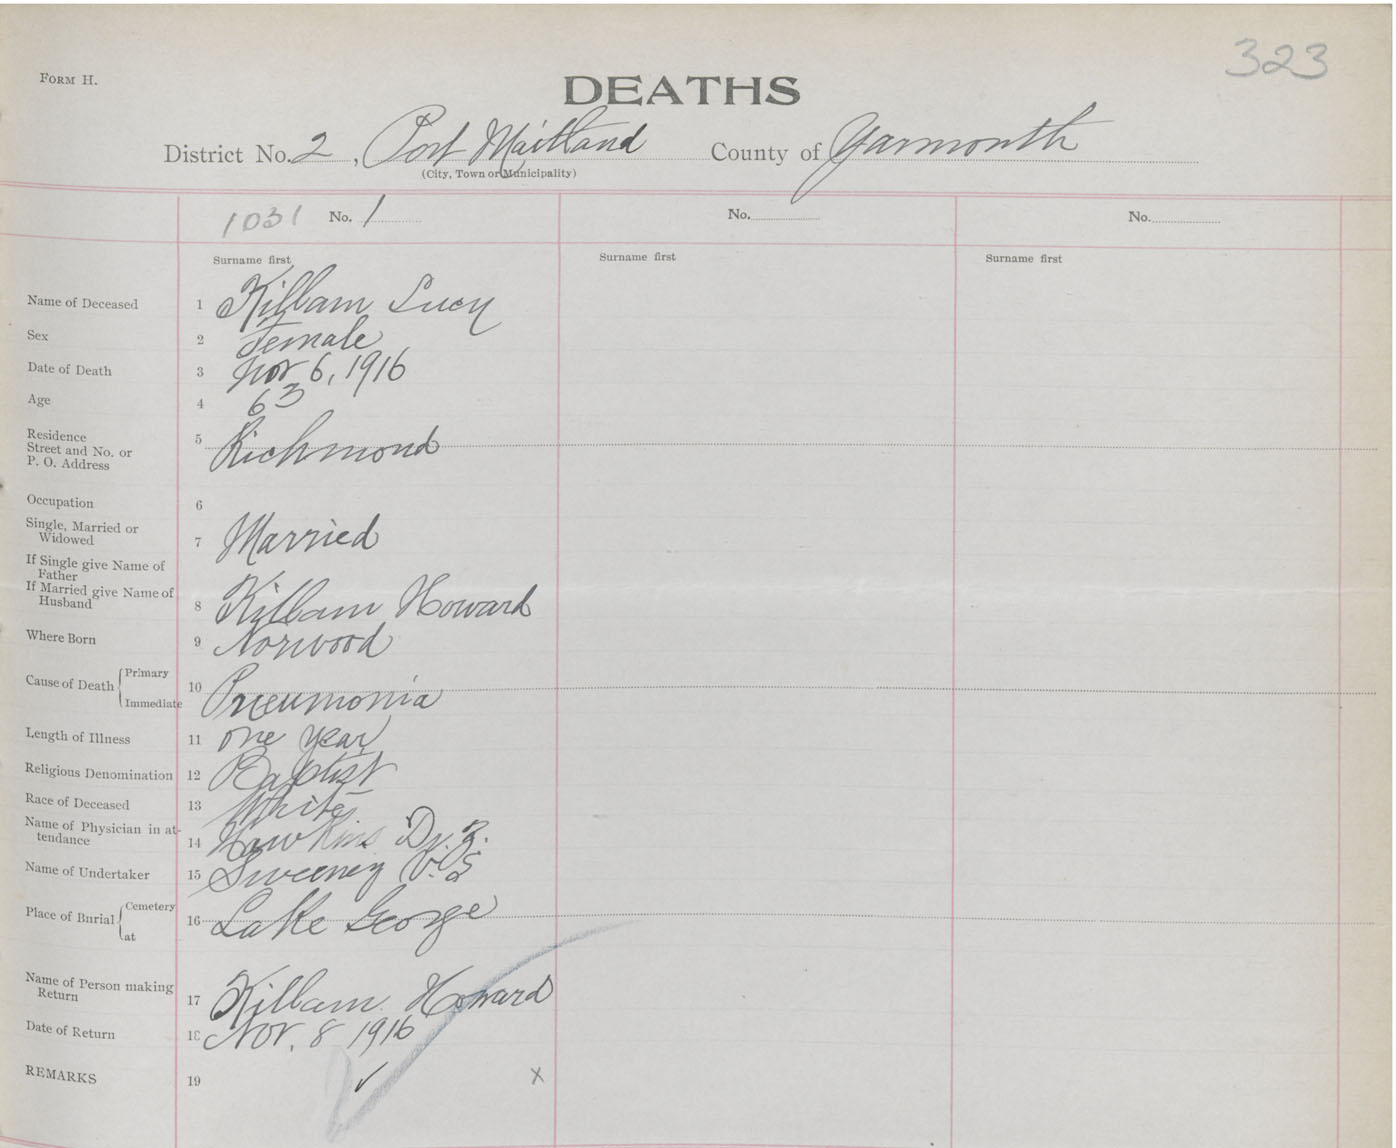 323
FORM H.
DEATHS
District No. 2, Port Maitland County of Yarmouth
(City, Town or Municipality)
1031 No. 1 No. No.
Surname first Surname first Surname first
Name of Deceased 1 Killam Lucy
Sex 2 Female
Date of Death 3 Nov 6, 1916
Age 4 63
Residence
Street and No. or
P. O. Address 5 Richmond
Occupation 6
Single, Married or
Widowed 7 Married
If Single give Name of
Father
If Married give Name of
Husband 8 Killam Howard
Where Born 9 Norwood
Cause of Death { Primary
Immediate 10 Pneumonia
Length of Illness 11 one year
Religious Denomination 12 Baptist
Race of Deceased 13 White
Name of Physician in at-
tendance 14 Hawkins Dr. Z.
Name of Undertaker 15 Sweeney V.S
Place of Burial { Cemetery
at 16 Lake George
Name of Person making
Return 17 Killam Howard
Date of Return 18 Nov. 8 1916
REMARKS 19 ✓ x